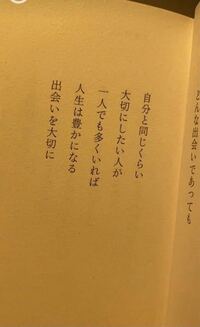 どんな出会いであっても
自分と同じくらい
大切にしたい人が
一人でも多くいれば
人生は豊かになる
出会いを大切に